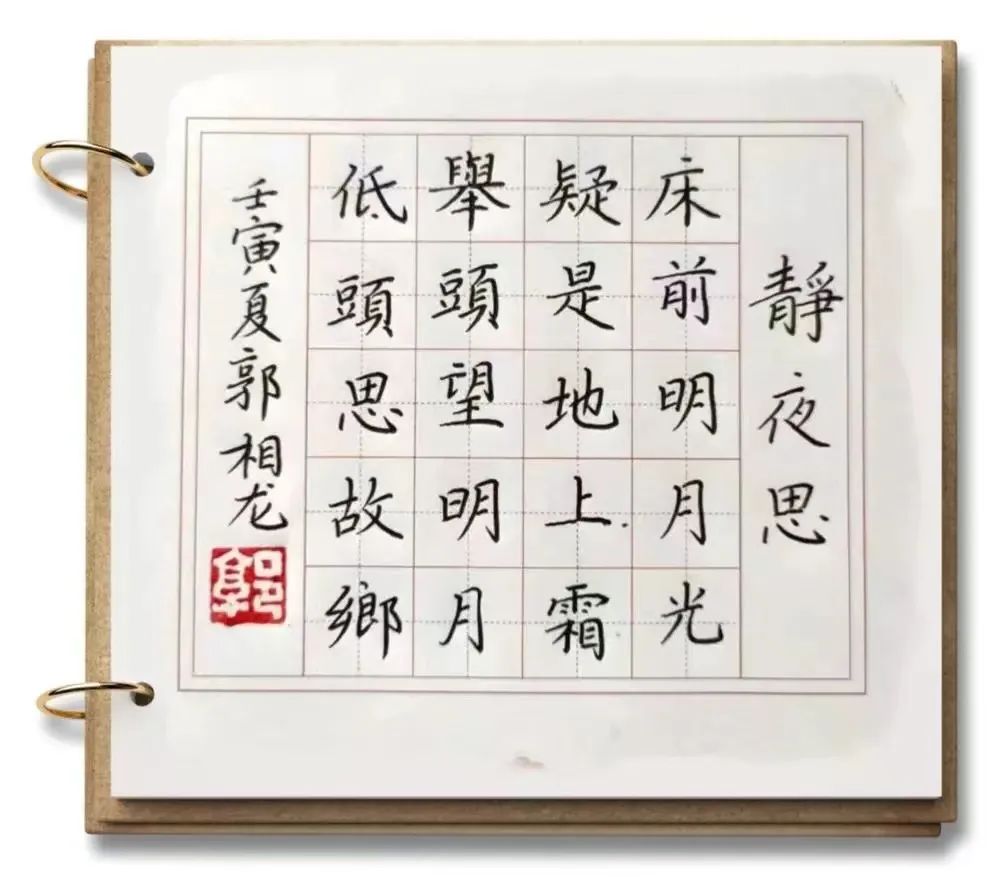 靜夜思
床前明月光
疑是地上霜
舉頭望明月
低頭思故鄉
壬寅夏郭相龙
郭